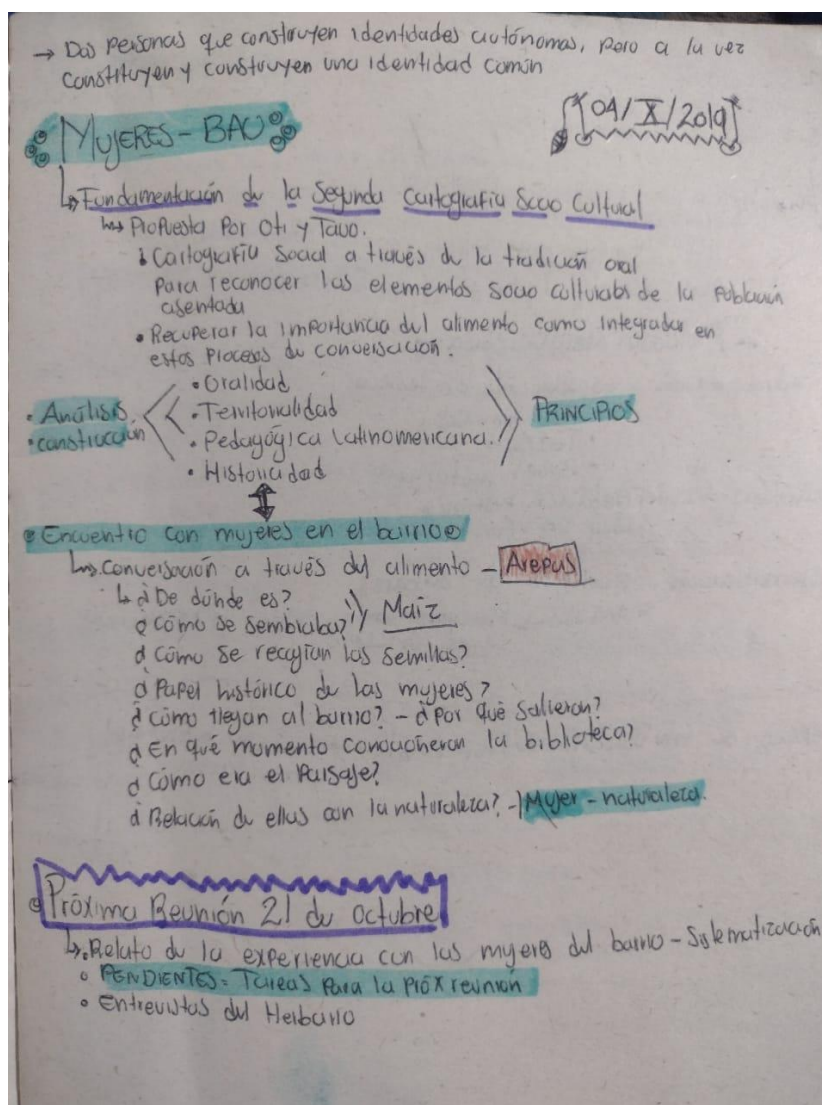 → Dos personas que construyen identidades autónomas, pero a la vez
constituyen y construyen una identidad común
MUJERES - BAU
[04/X/2019]
↳ Fundamentación de la Segunda Cartografía Socio Cultural
↳ Propuesta Por Oti y Tavo.
• Cartografía Social a través de la tradición oral
para reconocer los elementos socio culturales de la población
asentada
• Recuperar la importancia del alimento como integrador en
estos procesos de conversación.
• Oralidad
• Análisis
• construcción
• Territorialidad
• Pedagógica Latinomericana.
• Historicidad
PRINCIPIOS
Encuentro con mujeres en el barrio
↳ Conversación a través del alimento - Arepas
↳ ¿De dónde es?
¿Cómo se sembraba? Maíz
¿Cómo se recogían las semillas?
¿Papel histórico de las mujeres?
¿Cómo llegan al barrio? - ¿Por qué salieron?
¿En qué momento la biblioteca?
¿Cómo era el Paisaje?
¿Relación de ellas con la naturaleza? → Mujer - naturaleza.
Próxima Reunión 21 de octubre
↳ Relato de la experiencia con las mujeres del barrio - Sistematización
• PENDIENTES = Tareas para la próx reunión
• Entrevistas del Herbario